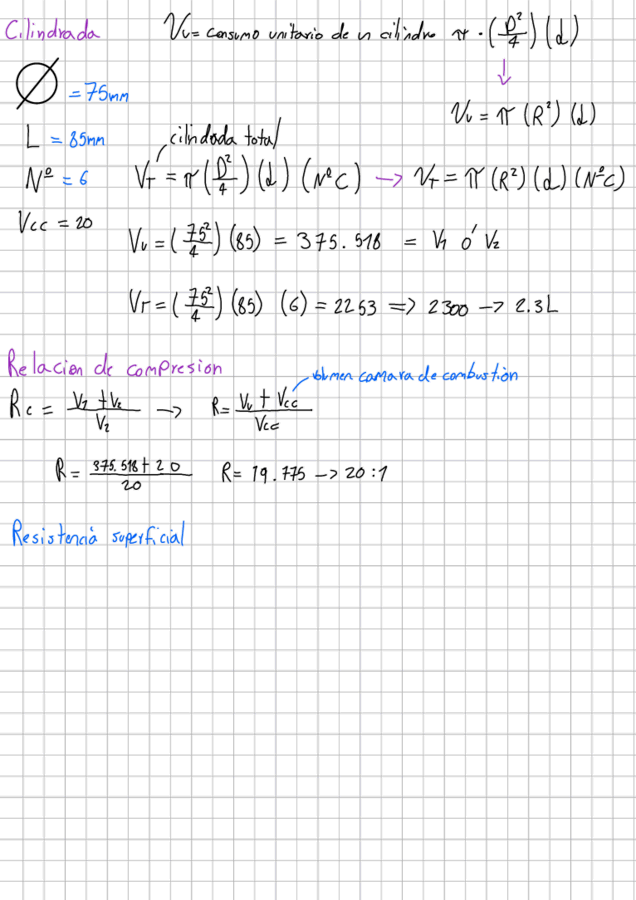 Cilindrada
Vu = consumo unitario de un cilindro π · (D²/4) (d)
Ø = 75mm
Vu = π (R²) (d)
L = 85mm
cilindrada total
Nº = 6
VT = π (D²/4) (d) (NºC) → VT = π (R²) (d) (NºC)
Vcc = 20
Vu = (75²/4) (85) = 375.518 = V1 ó V2
VT = (75²/4) (85) (6) = 2253 => 2300 → 2.3L
Relacion de compresion
volumen camara de combustión
Rc = V1 + V2 / V2 → R = Vu + Vcc / Vcc
R = 375.518 + 20 / 20 R = 19.775 -> 20:1
Resistencia superficial